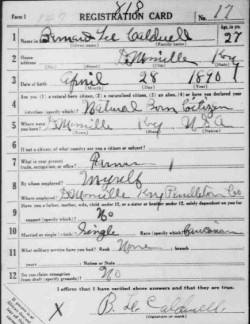 Form 1
REGISTRATION CARD
No. 17
1 Name in full Lee Caldwell
(Given name) (Family name)
Age, in yrs.
27
2 Home address DeMossville Ky
(No.) (Street) (City) (State)
3 Date of birth April 28 1890
(Month) (Day) (Year)
4 Are you (1) a natural-born citizen, (2) a naturalized citizen, (3) an alien, (4) or have you declared your
intention (specify which)? Natural Born Citizen
5 Where were you born? DeMossville Ky USA
(Town) (State) (Nation)
6 If not a citizen, of what country are you a citizen or subject?
7 What is your present trade, occupation, or office? Farmer
8 By whom employed? Myself
Where employed? DeMossville Ky Pendleton Co
9 Have you a father, mother, wife, child under 12, or a sister or brother under 12, solely dependent on you for
support (specify which)? No
10 Married or single (which)? Single Race (specify which)? Caucasian
11 What military service have you had? Rank None ; branch
; years ; Nation or State
12 Do you claim exemption from draft (specify grounds)? No
I affirm that I have verified above answers and that they are true.
X B. L. Caldwell
(Signature or mark)